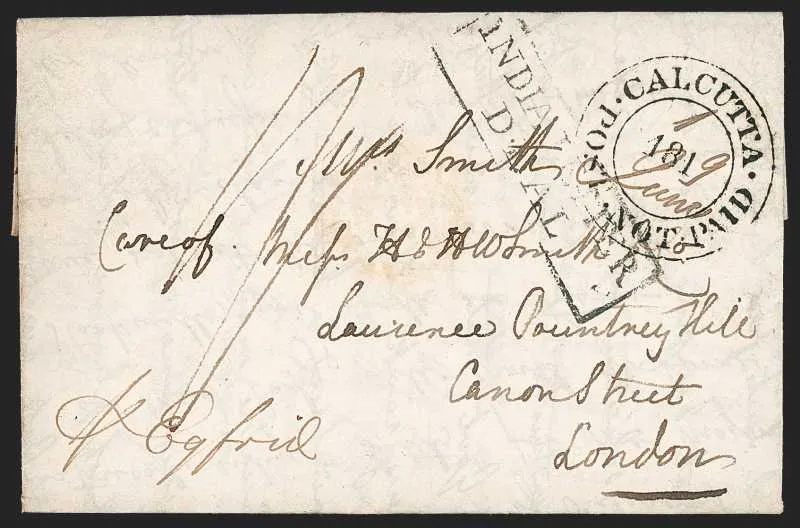 INDIA LETTER
DEAL
CALCUTTA · POST · NOT · PAID ·
181
9
June
Mrs Smith
Care of Messrs H & H W Smith
Laurence Pountney Hill
Canon Street
London
Pr Egfrid